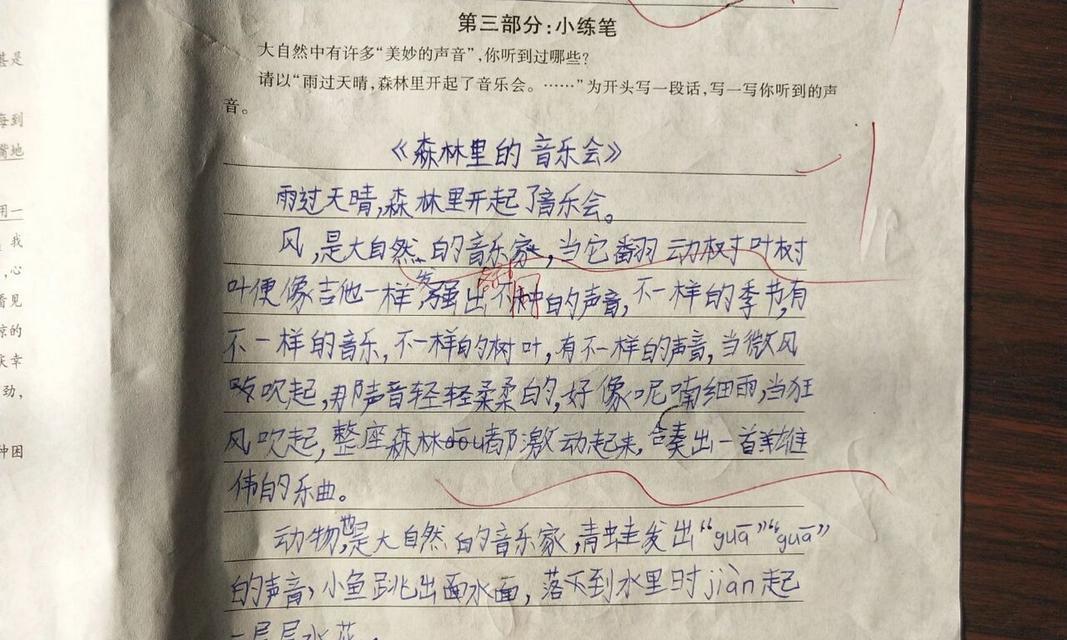 甚是
每到
嘴地
用一
我
，心
看见
凉的
庆幸
劲，
种困
第三部分：小练笔
大自然中有许多“美妙的声音”，你听到过哪些？
请以“雨过天晴，森林里开起了音乐会。……”为开头写一段话，写一写你听到的声
音。
《森林里的音乐会》
雨过天晴，森林里开起了音乐会。
风，是大自然的音乐家，当它翻动树叶树
叶便像吉他一样发弹出不同种的声音，不一样的季节，有
不一样的音乐，不一样的树叶，有不一样的声音，当微风
吹起，那声音轻轻柔柔的，好像呢喃细雨，当狂
风吹起，整座森林都激动起来，合奏出一首雄
伟的乐曲。
动物，也是大自然的音乐家，青蛙发出“guā”“guā”
的声音，小鱼跳出面水面，落下到水里时jiàn起
一层层水花，